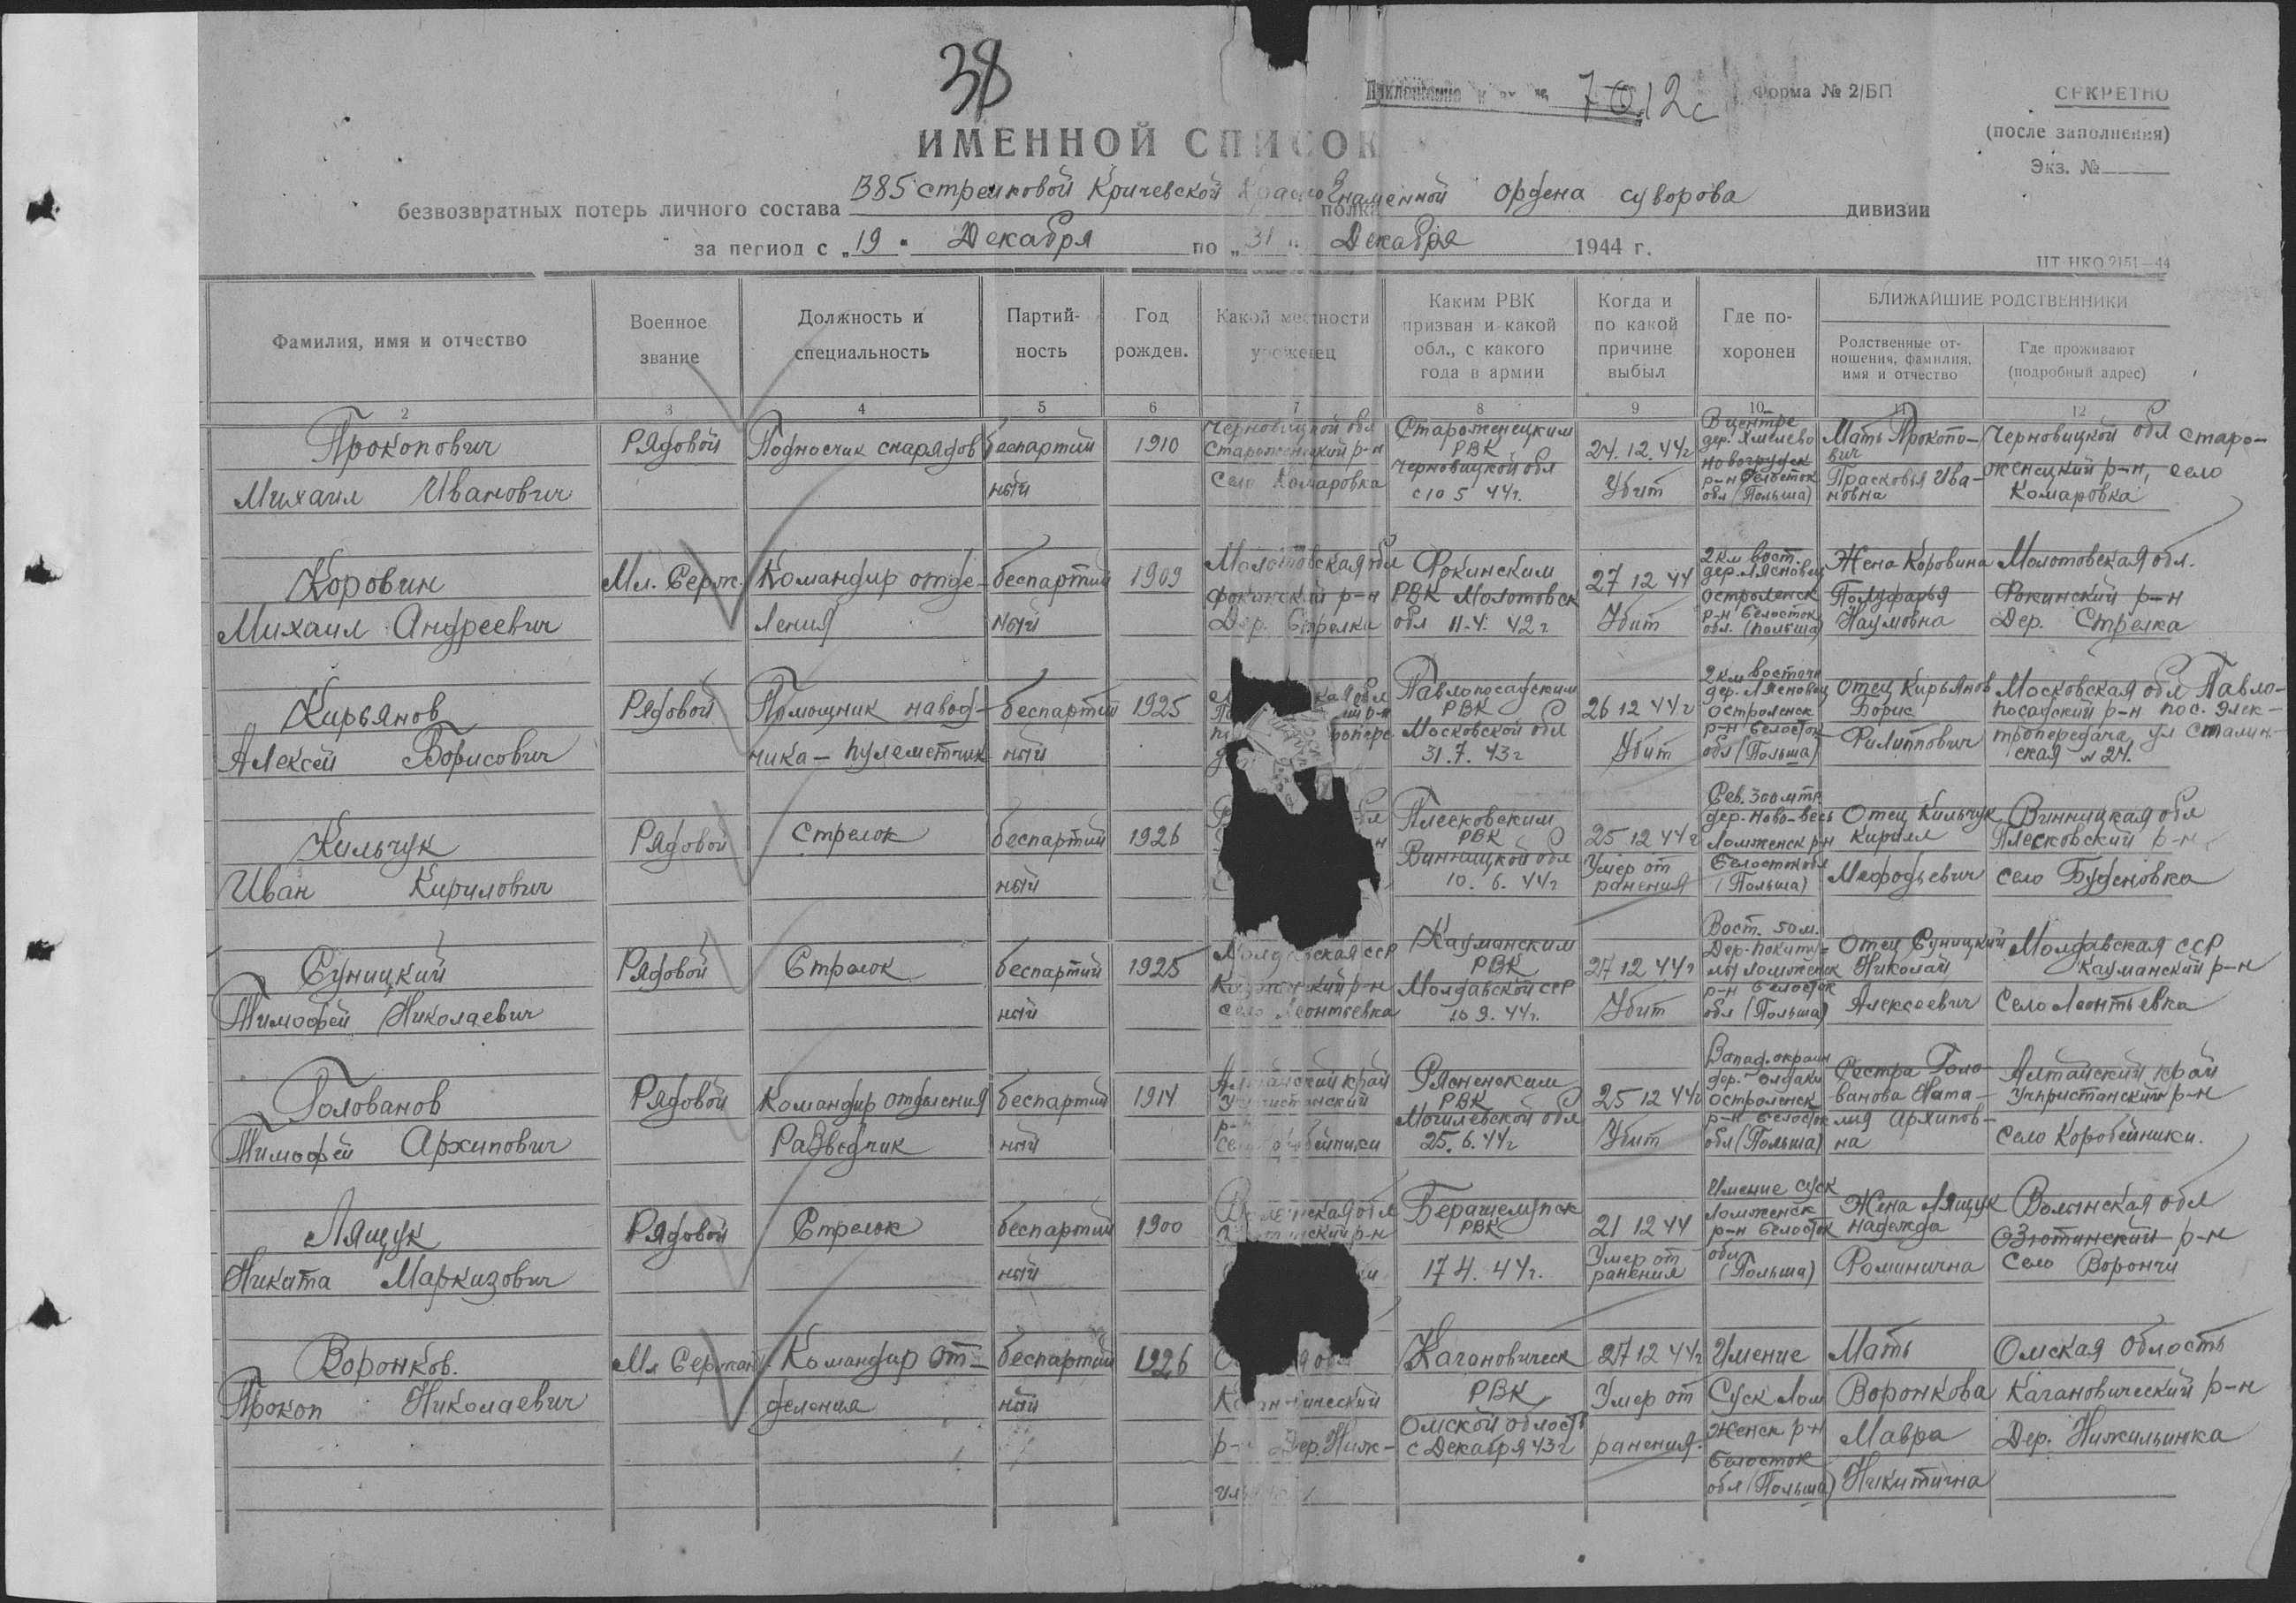 38
7012с
Форма № 2/БП
СЕКРЕТНО
(после заполнения)
Экз. №
ИМЕННОЙ СПИСОК
безвозвратных потерь личного состава 385 стрелковой Кричевской Краснознаменной полка ордена суворова дивизии
за период с „19" Декабря по „31" Декабря 1944 г.
ЦТ НКО 2151—44
Фамилия, имя и отчество
Военное звание
Должность и специальность
Партий-
ность
Год рожден.
Какой местности уроженец
Каким РВК
призван и какой
обл., с какого
года в армии
Когда и
по какой
причине
выбыл
Где по-
хоронен
БЛИЖАЙШИЕ РОДСТВЕННИКИ
Родственные от-
ношения, фамилия,
имя и отчество
Где проживают
(подробный адрес)
2 3 4 5 6 7 8 9 10 11 12
Прокопович
Михаил Иванович
Рядовой
Подносчик снарядов
беспартий
ный
1910
Черновицкой обл
Сторожинецкий р-н
Село Комаровка
Староженецким
РВК
Черновицкой обл
с 10 5 44г.
24.12.44г
Убит
В центре
дер. Хмелево
р-н Белосток
обл (Польша)
Мать Прокопо-
вич
Прасковья Ива-
новна
Черновицкой обл старо-
женецкий р-н, село
Комаровка
Коровин
Михаил Андреевич
Мл. Серж.
Командир отде-
ления
беспартий
ный
1909
Молотовская обл
Фокинский р-н
Дер. Стрелка
Фокинским
РВК Молотовск
обл 11.4. 42г
27 12 44
Убит
2 км вост.
дер. Лясновец
Остроленск
р-н Белосток
обл. (Польша)
Жена Коровина
Наумовна
Молотовская обл.
Фокинский р-н
Дер. Стрелка
Кирьянов
Алексей Борисович
Рядовой
Помощник навод-
чика - пулеметчик
беспартий
ный
1925
Павлопосадским
РВК
Московской обл
31.7.43г
26 12 44г
Убит
2 км восточн
дер. Лясновец
Остроленск
р-н Белосток
обл (Польша)
Отец Кирьянов
Борис
Филиппович
Московская обл Павло-
посадский р-н пос. Элек-
тропередача ул Сталин-
ская № 24.
Кильчук
Иван Кирилович
Рядовой
Стрелок
беспартий
ный
1926
Плесковским
РВК
Винницкой обл
10. 6. 44г
25 12 44г
Умер от
ранения
Сев. 300 мтр
дер. Ново-весь
Ломженск р-н
Белосток обл
(Польша)
Отец Кильчук
Кирилл
Мефодьевич
Винницкая обл
Плесковский р-н
село Буденовка
Суницкий
Тимофей Николаевич
Рядовой
Стрелок
беспартий
ный
1925
Молдавская ССР
село Леонтьевка
Кауманским
РВК
Молдавской ССР
10 9. 44г.
27 12 44г
Убит
Вост. 50 м.
Ломженск
р-н Белосток
обл (Польша)
Отец Суницкий
Николай
Алексеевич
Молдавская ССР
Кауманский р-н
Село Леонтьевка
Голованов
Тимофей Архипович
Рядовой
Командир отделения
Разведчик
беспартий
ный
1914
Алтайский край
Рясненским
РВК
Могилевской обл
25. 6. 44г
25 12 44г
Убит
Запад. окраин
дер. Олдаки
Остроленск
р-н Белосток
обл (Польша)
Сестра Голо-
ванова Ната-
лия Архипов-
на
Алтайский край
Учпристанский р-н
Село Коробейники.
Лящук
Никата Маркизович
Рядовой
Стрелок
беспартий
ный
1900
РВК
17 4. 44г.
21 12 44
Умер от
ранения
Имение Суск
Ломженск
р-н Белосток
обл
(Польша)
Жена Лящук
Надежда
Фоминична
Волынская обл
Озютинский р-н
Село Ворончи
Воронков.
Прокоп Николаевич
Мл Сержант
Командир от-
деления
беспартий
ный
1926
р-н Дер. Ниж-
Кагановическ
РВК
Омской област
с Декабря 43г
27 12 44г
Умер от
ранения.
Имение
Суск Лом
женск р-н
Белосток
обл (Польша)
Мать
Воронкова
Мавра
Никитична
Омская область
Кагановический р-н
Дер. Нижильинка